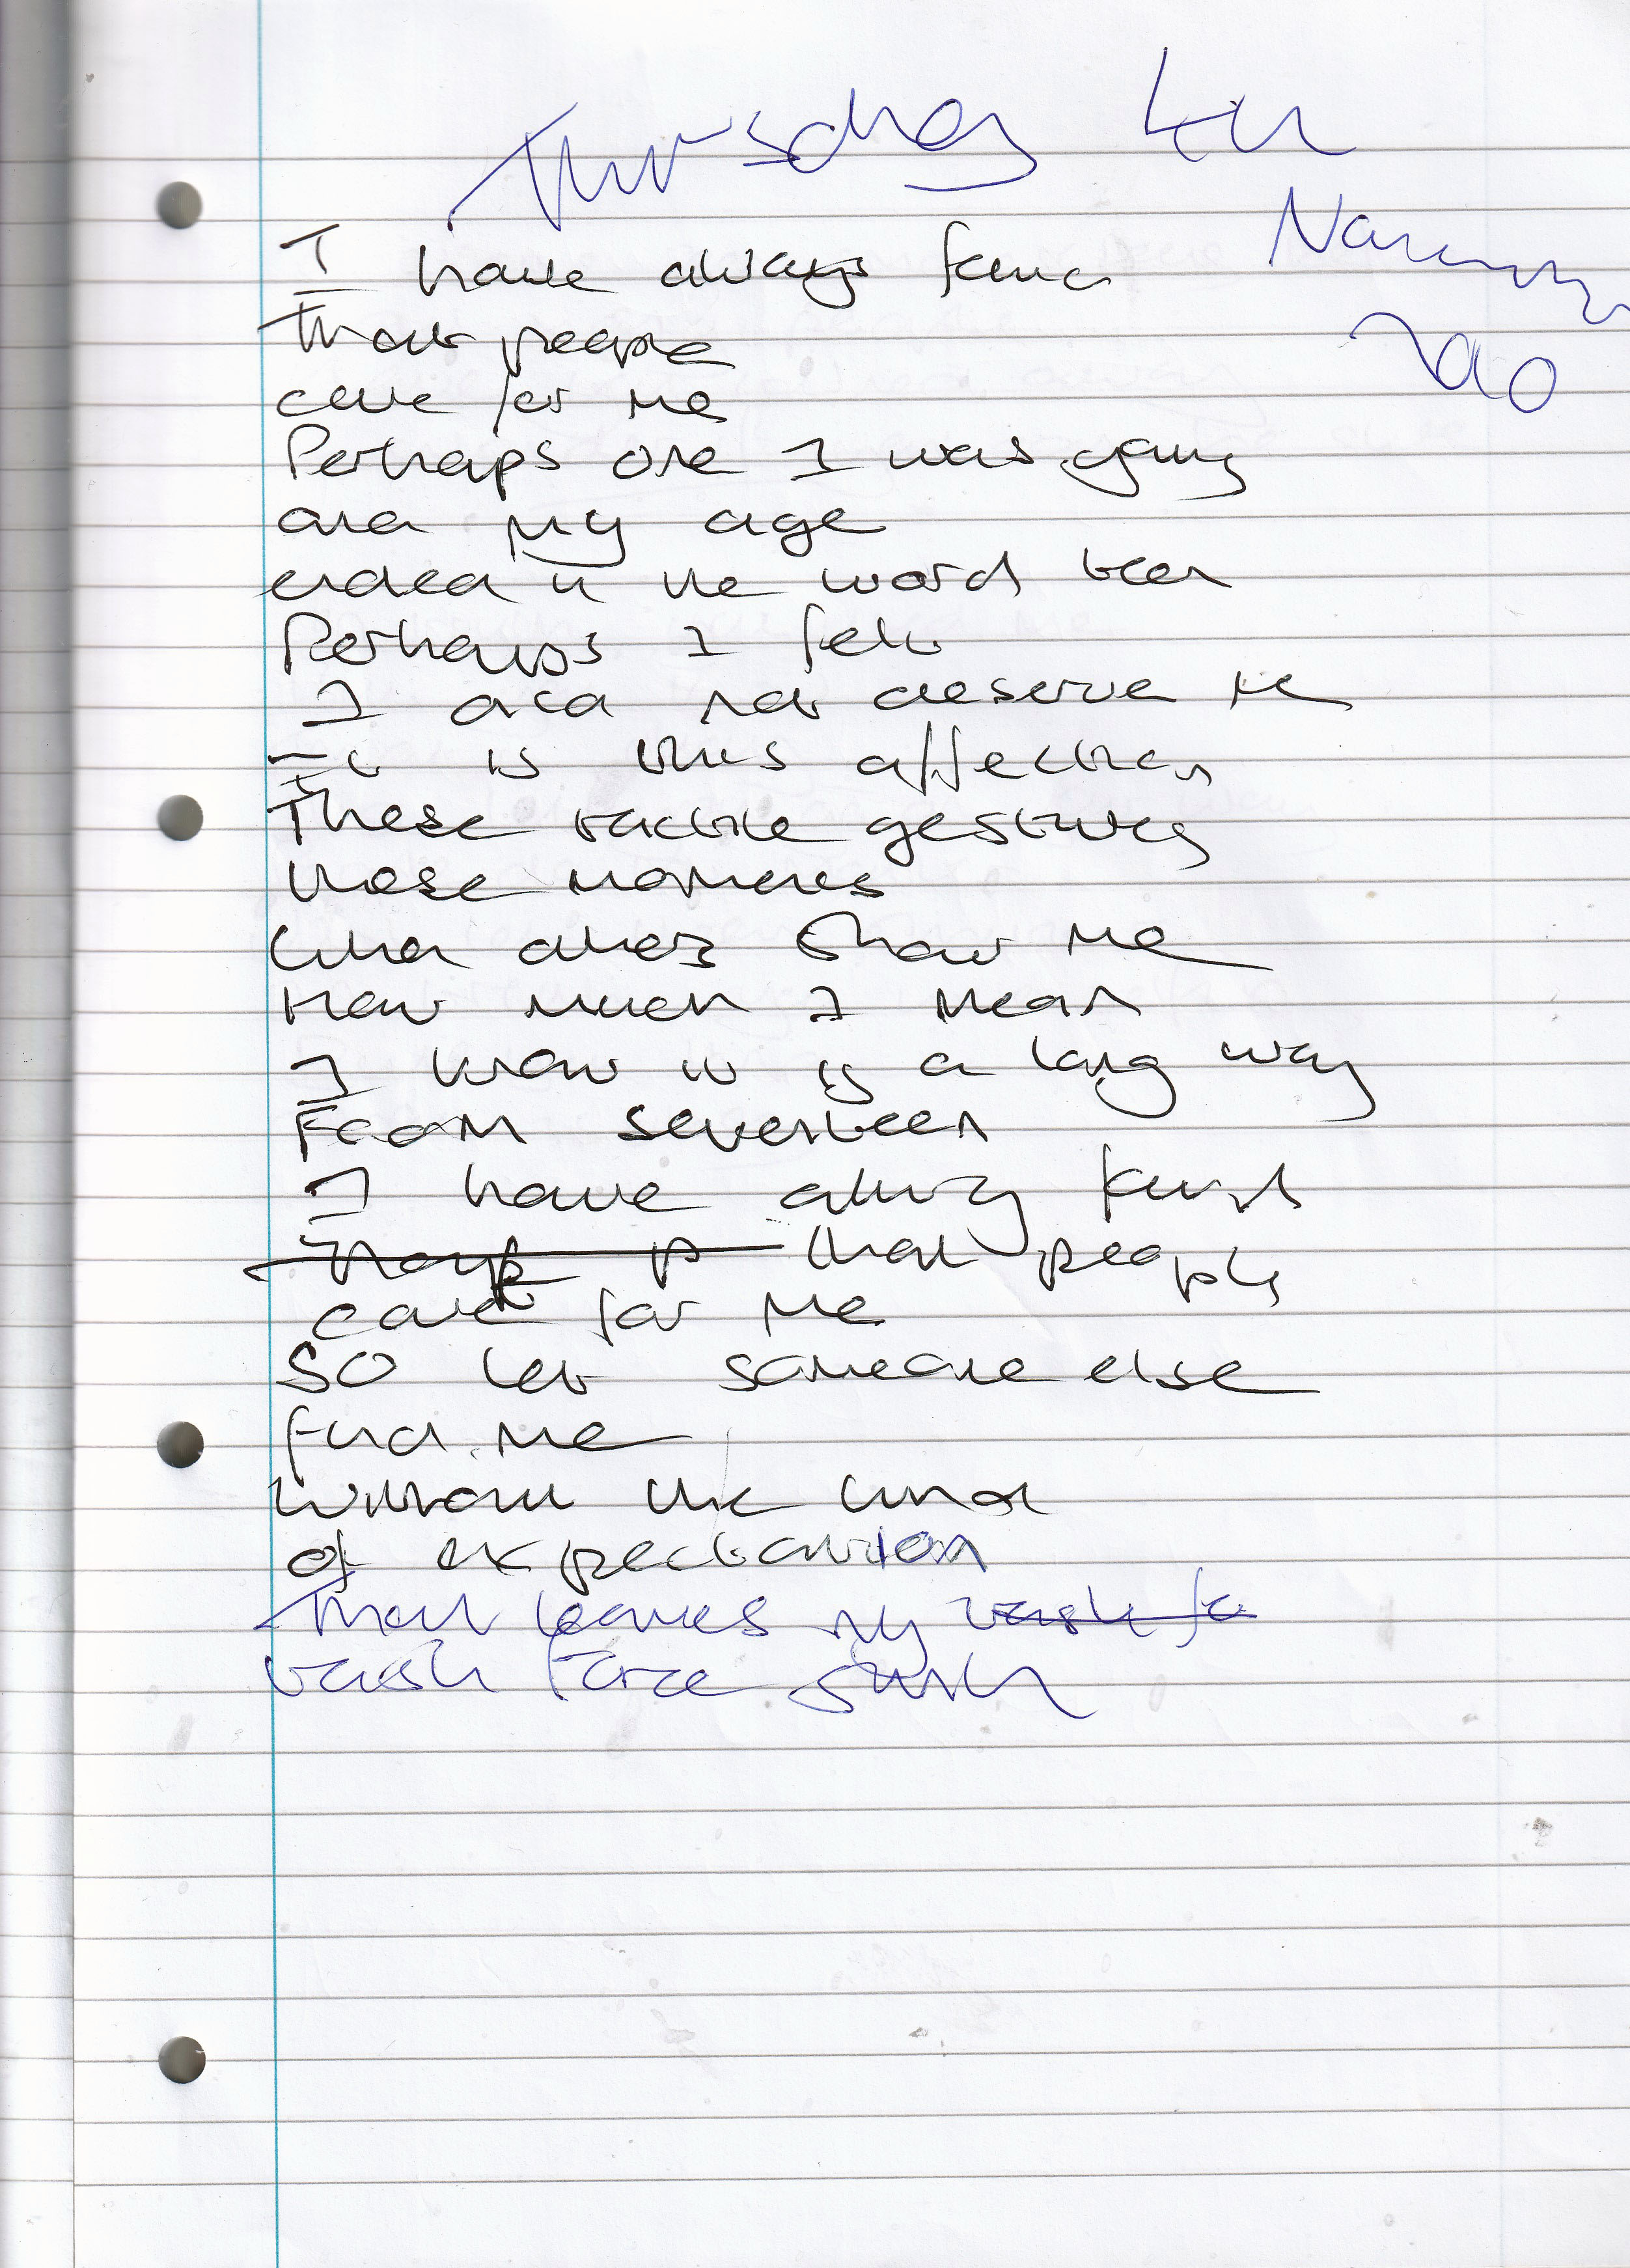 Thursday 4th
November
2010
I have always found
That people
care for me
Perhaps once I was young
and my age
ended in the word teen
Perhaps I felt
I did not deserve it
It is this affection
These tactile gestures
those moments
When others show me
How much I mean
I know it is a long way
From seventeen
I have always found
that people
care for me
So let someone else
find me
Without the kind
of expectation
That leaves my
task force